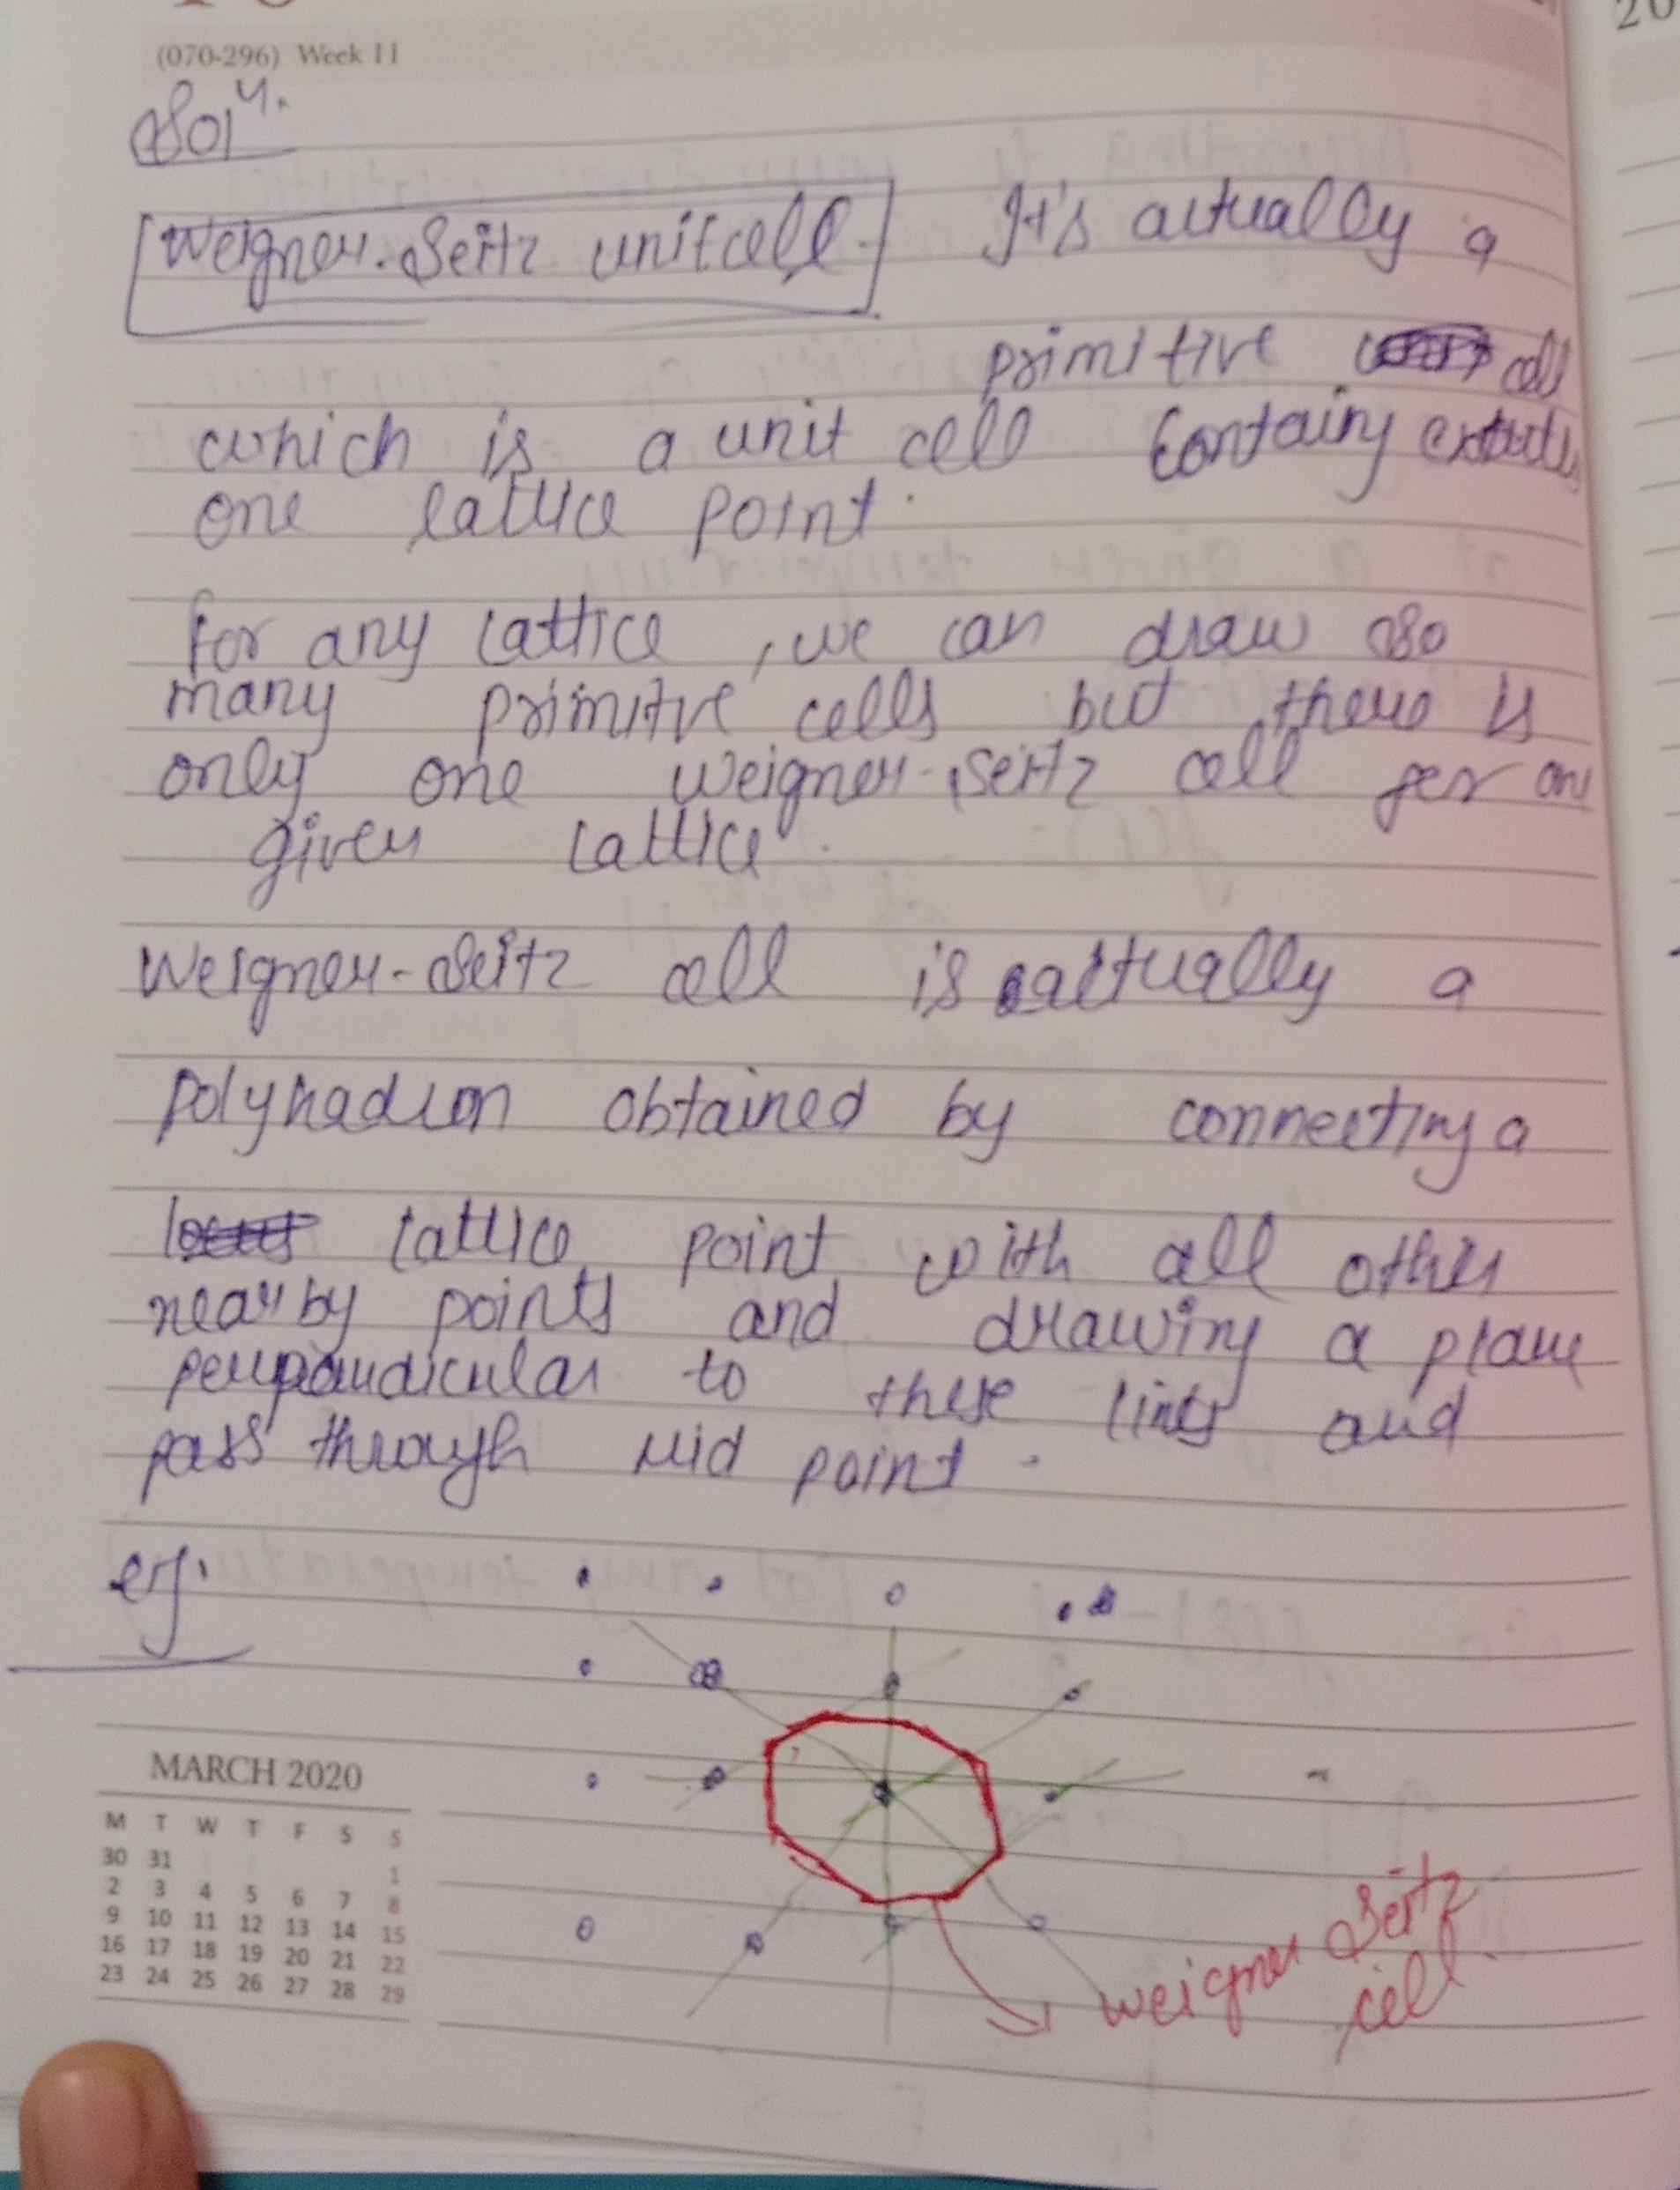 (070-296) Week 11
Sol4.
Weigner-Seitz unitcell It's actually a
primitive cell
which is a unit cell containing
one lattice point.
for any lattice, we can draw so
many primitive cells but there is
only one weigner-seitz cell for
given lattice.
Weigner-Seitz cell is actually a
polyhadron obtained by connecting a
lattice point with all other
nearby points and drawing a plane
perpandicular to these lines and
pass through mid point.
eg.
MARCH 2020
M T W T F S S
30 31 1
2 3 4 5 6 7 8
9 10 11 12 13 14 15
16 17 18 19 20 21 22
23 24 25 26 27 28 29
weigner Seitz
cell.